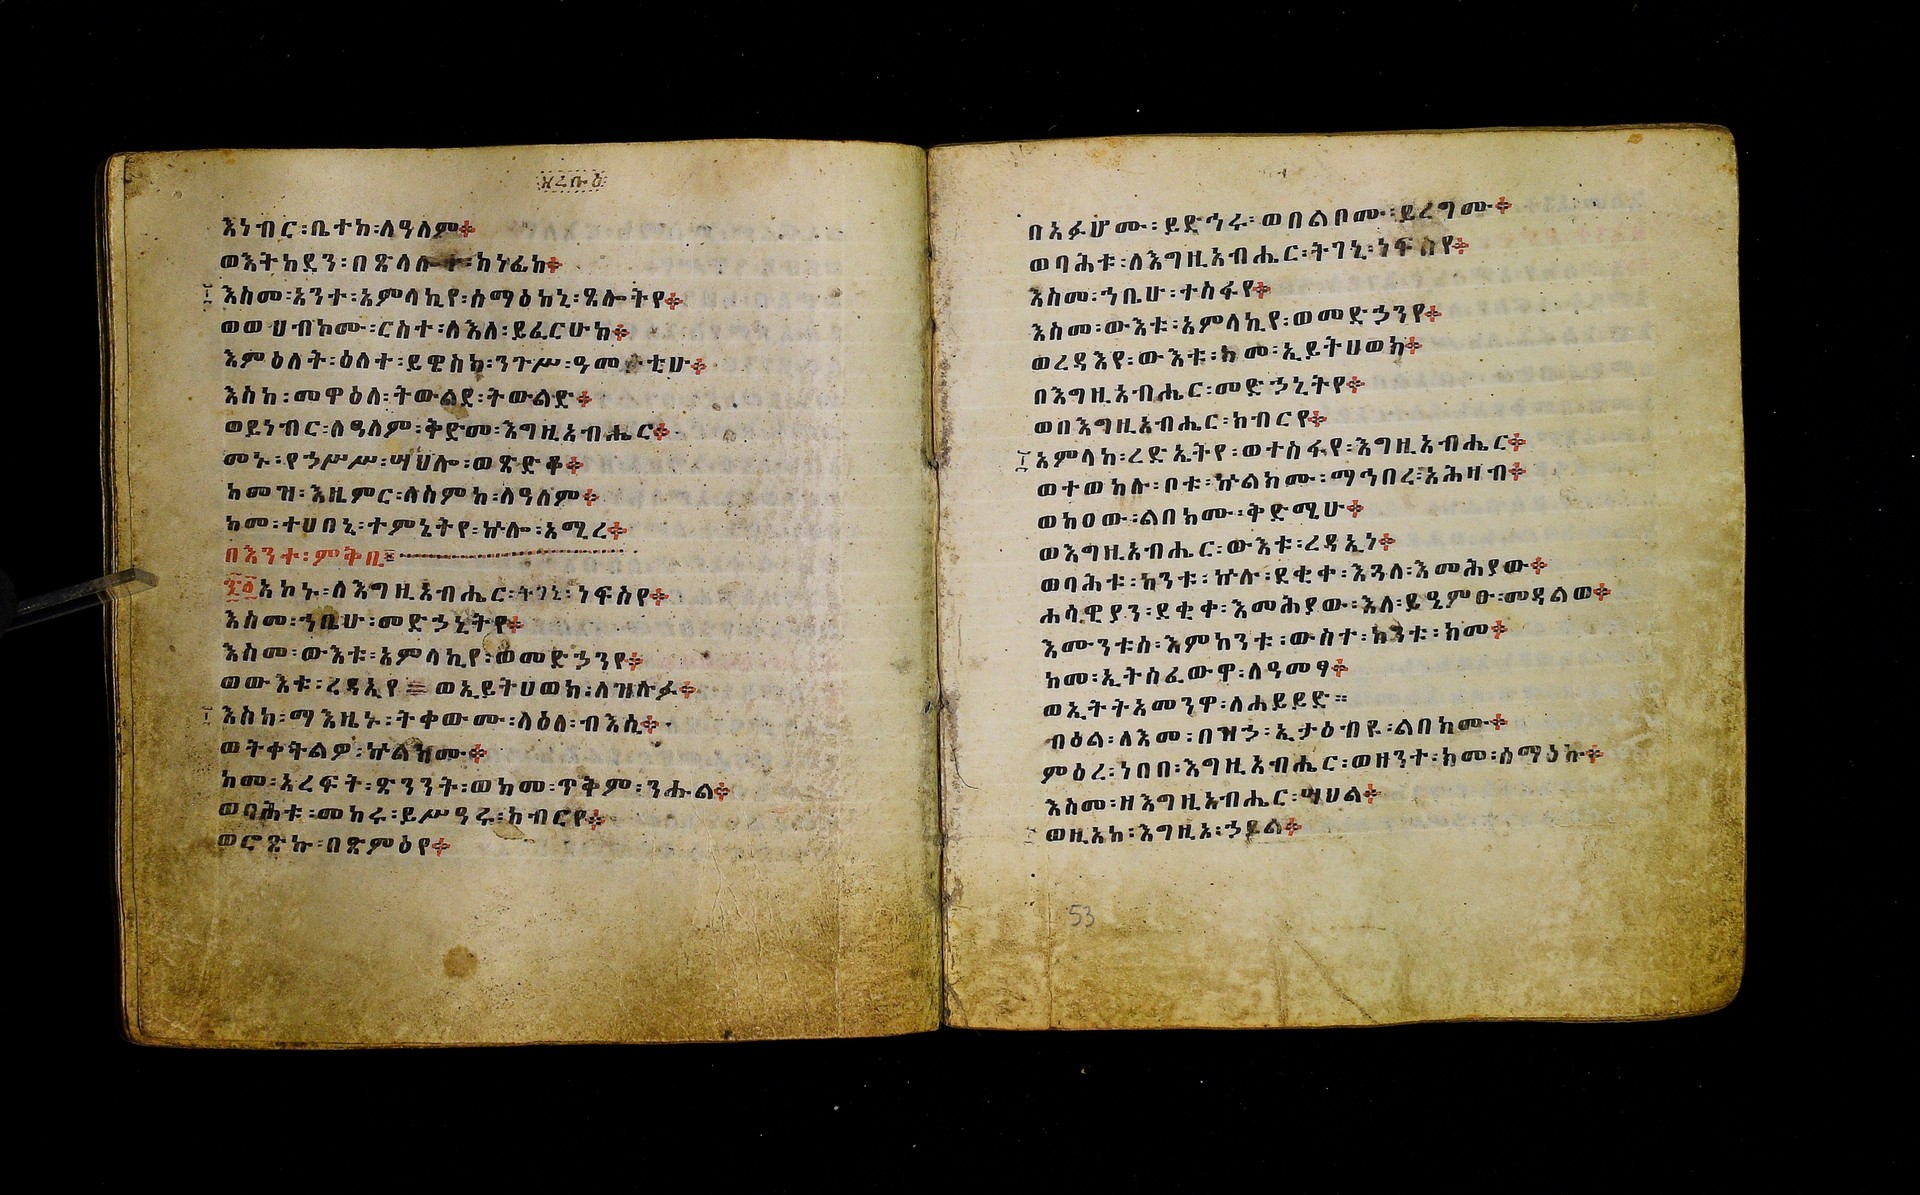 ዘረቡዕ
እነብር፡ቤተከ፡ለዓለም።
ወእትከደን፡በጽላሎተ፡ክነፊከ።
እስመ፡አንተ፡አምላኪየ፡ሰማዕከኒ፡ጸሎትየ።
ወወሀብኮሙ፡ርስተ፡ለእለ፡ይፈርሁከ።
እምዕለት፡ዕለተ፡ይዌስክ፡ንጉሥ፡ዓመቲሁ።
እስከ፡መዋዕለ፡ትውልደ፡ትውልድ።
ወይነብር፡ለዓለም፡ቅድመ፡እግዚአብሔር።
መኑ፡የኃሥሥ፡ሣህሎ፡ወጽድቆ።
ከመዝ፡እዜምር፡ለስምከ፡ለዓለም።
ከመ፡ተሀበኒ፡ተምኔትየ፡ኵሎ፡አሚረ።
በእንተ፡ምቅቢ፡
፷፩አኮኑ፡ለእግዚአብሔር፡ትገኒ፡ነፍስየ።
እስመ፡ኀቤሁ፡መድኃኒትየ።
እስመ፡ውእቱ፡አምላኪየ፡ወመድኃንየ።
ወውእቱ፡ረዳኢየ፡ወኢይትሀወክ፡ለዝሉፉ።
እስከ፡ማእዜኑ፡ትቀውሙ፡ላዕለ፡ብእሲ።
ወትቀትልዎ፡ኵልክሙ።
ከመ፡አረፍት፡ጽንንት፡ወከመ፡ጥቅም፡ንሑል።
ወባሕቱ፡መከሩ፡ይሥዓሩ፡ክብርየ።
ወሮጽኩ፡በጽምዕየ።
በአፉሆሙ፡ይድኅሩ፡ወበልቦሙ፡ይረግሙ።
ወባሕቱ፡ለእግዚአብሔር፡ትገኒ፡ነፍስየ።
እስመ፡ኀቤሁ፡ተስፋየ።
እስመ፡ውእቱ፡አምላኪየ፡ወመድኃንየ።
ወረዳእየ፡ውእቱ፡ከመ፡ኢይትሀወክ።
በእግዚአብሔር፡መድኃኒትየ።
ወበእግዚአብሔር፡ክብርየ።
አምላከ፡ረድኤትየ፡ወተስፋየ፡እግዚአብሔር።
ወተወከሉ፡ቦቱ፡ኵልክሙ፡ማኅበረ፡አሕዛብ።
ወከዐው፡ልበክሙ፡ቅድሜሁ።
ወእግዚአብሔር፡ውእቱ፡ረዳኢነ።
ወባሕቱ፡ከንቱ፡ኵሉ፡ደቂቀ፡እጓለ፡እመሕያው።
ሐሳዊያን፡ደቂቀ፡እመሕያው፡እለ፡ይዔምፁ፡መዳልወ።
እሙንቱሰ፡እምከንቱ፡ውስተ፡ከንቱ፡ከመ።
ከመ፡ኢትሰፈውዋ፡ለዓመፃ።
ወኢትትአመንዋ፡ለሐይይድ።
ብዕል፡ለእመ፡በዝኃ፡ኢታዕብዩ፡ልበክሙ።
ምዕረ፡ነበበ፡እግዚአብሔር፡ወዘንተ፡ከመ፡ሰማዕኩ።
እስመ፡ዘእግዚአብሔር፡ሣህል።
ወዚአከ፡እግዚአ፡ኃይል።
53